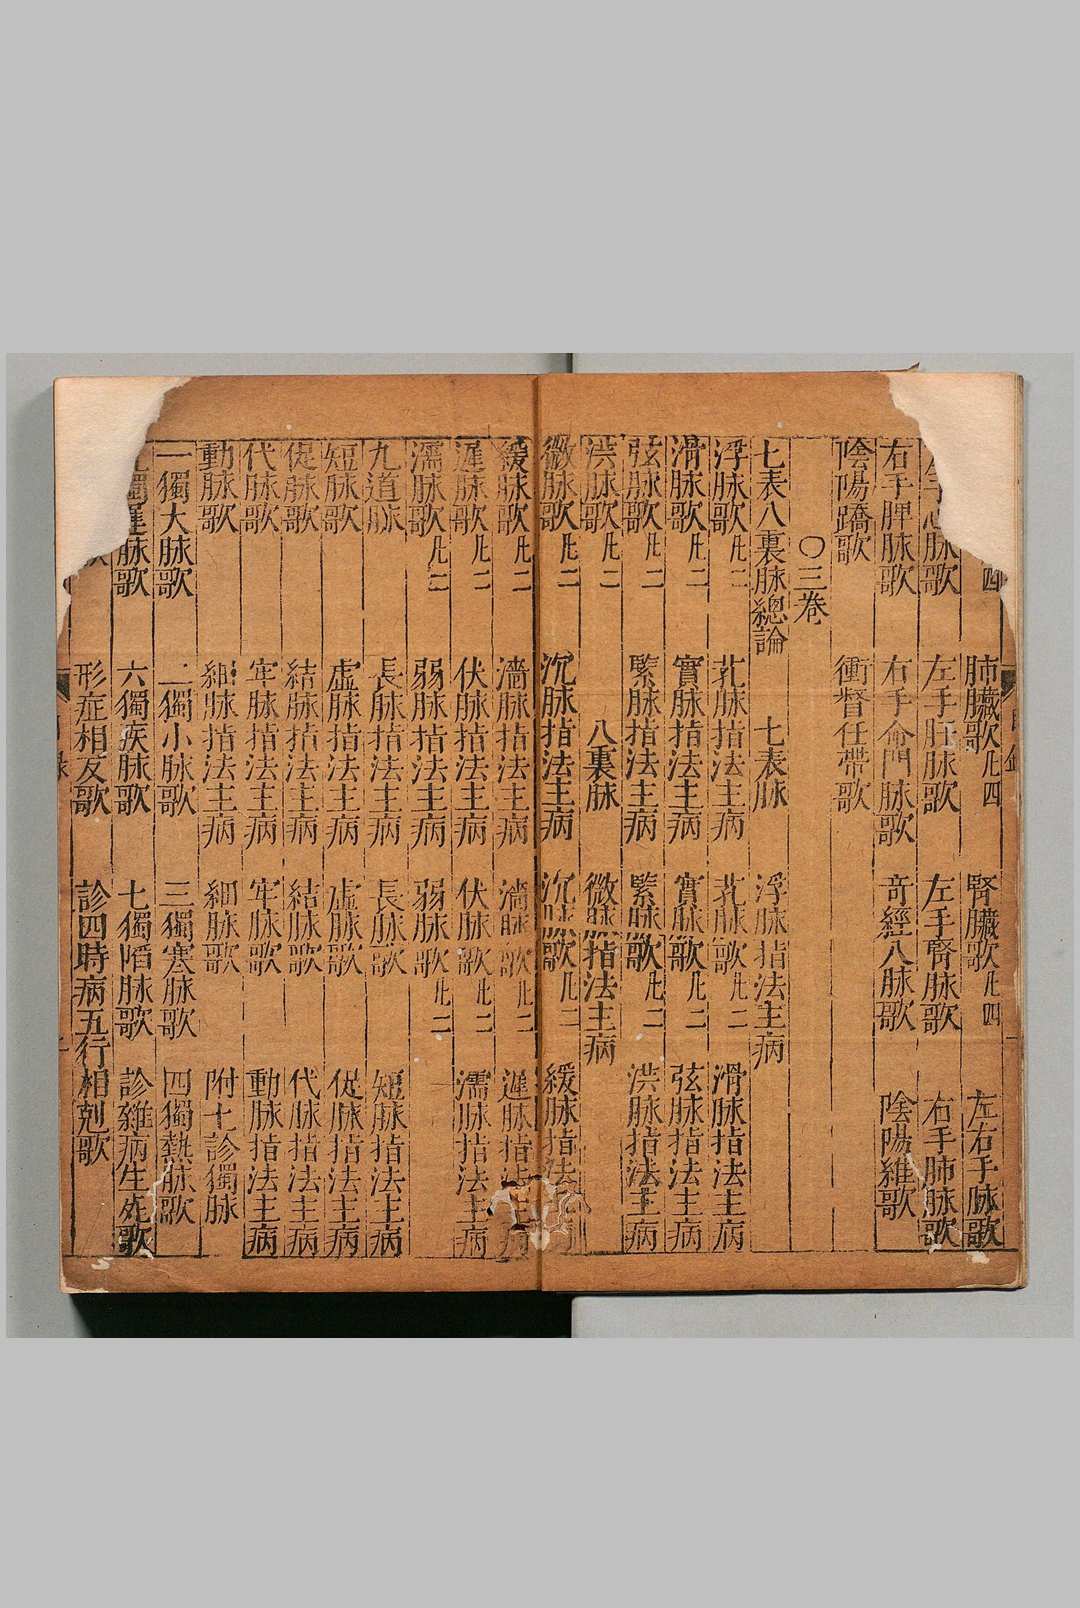 四 肺臟歌凡四 腎臟歌凡四 左右手脉歌
左手心脉歌 左手肝脉歌 左手腎脉歌 右手肺脉歌
右手脾脉歌 右手命門脉歌 竒經八脉歌 陰陽維歌
陰陽蹻歌 衝督任帶歌
〇三巻
七表八裏脉總論 七表脉 浮脉指法主病
浮脉歌凡二 芤脉指法主病 芤脉歌凡二 滑脉指法主病
滑脉歌凡二 實脉指法主病 實脉歌凡二 弦脉指法主病
弦脉歌凡二 緊脉指法主病 緊脉歌凡二 洪脉指法主病
洪脉歌凡二 八裏脉 微脉指法主病
微脉歌凡二 沉脉指法主病 沉脉歌凡二 緩脉指法主病
緩脉歌凡二 濇脉指法主病 濇脉歌凡二 遲脉指法主病
遲脉歌凡二 伏脉指法主病 伏脉歌凡二 濡脉指法主病
濡脉歌凡二 弱脉指法主病 弱脉歌凡二
九道脉 長脉指法主病 長脉歌 短脉指法主病
短脉歌 虛脉指法主病 虛脉歌 促脉指法主病
促脉歌 結脉指法主病 結脉歌 代脉指法主病
代脉歌 牢脉指法主病 牢脉歌 動脉指法主病
動脉歌 細脉指法主病 細脉歌 附七診獨脉
一獨大脉歌 二獨小脉歌 三獨寒脉歌 四獨熱脉歌
獨遲脉歌 六獨疾脉歌 七獨陷脉歌 診雜病生死歌
歌 形症相反歌 診四時病五行相剋歌
目錄